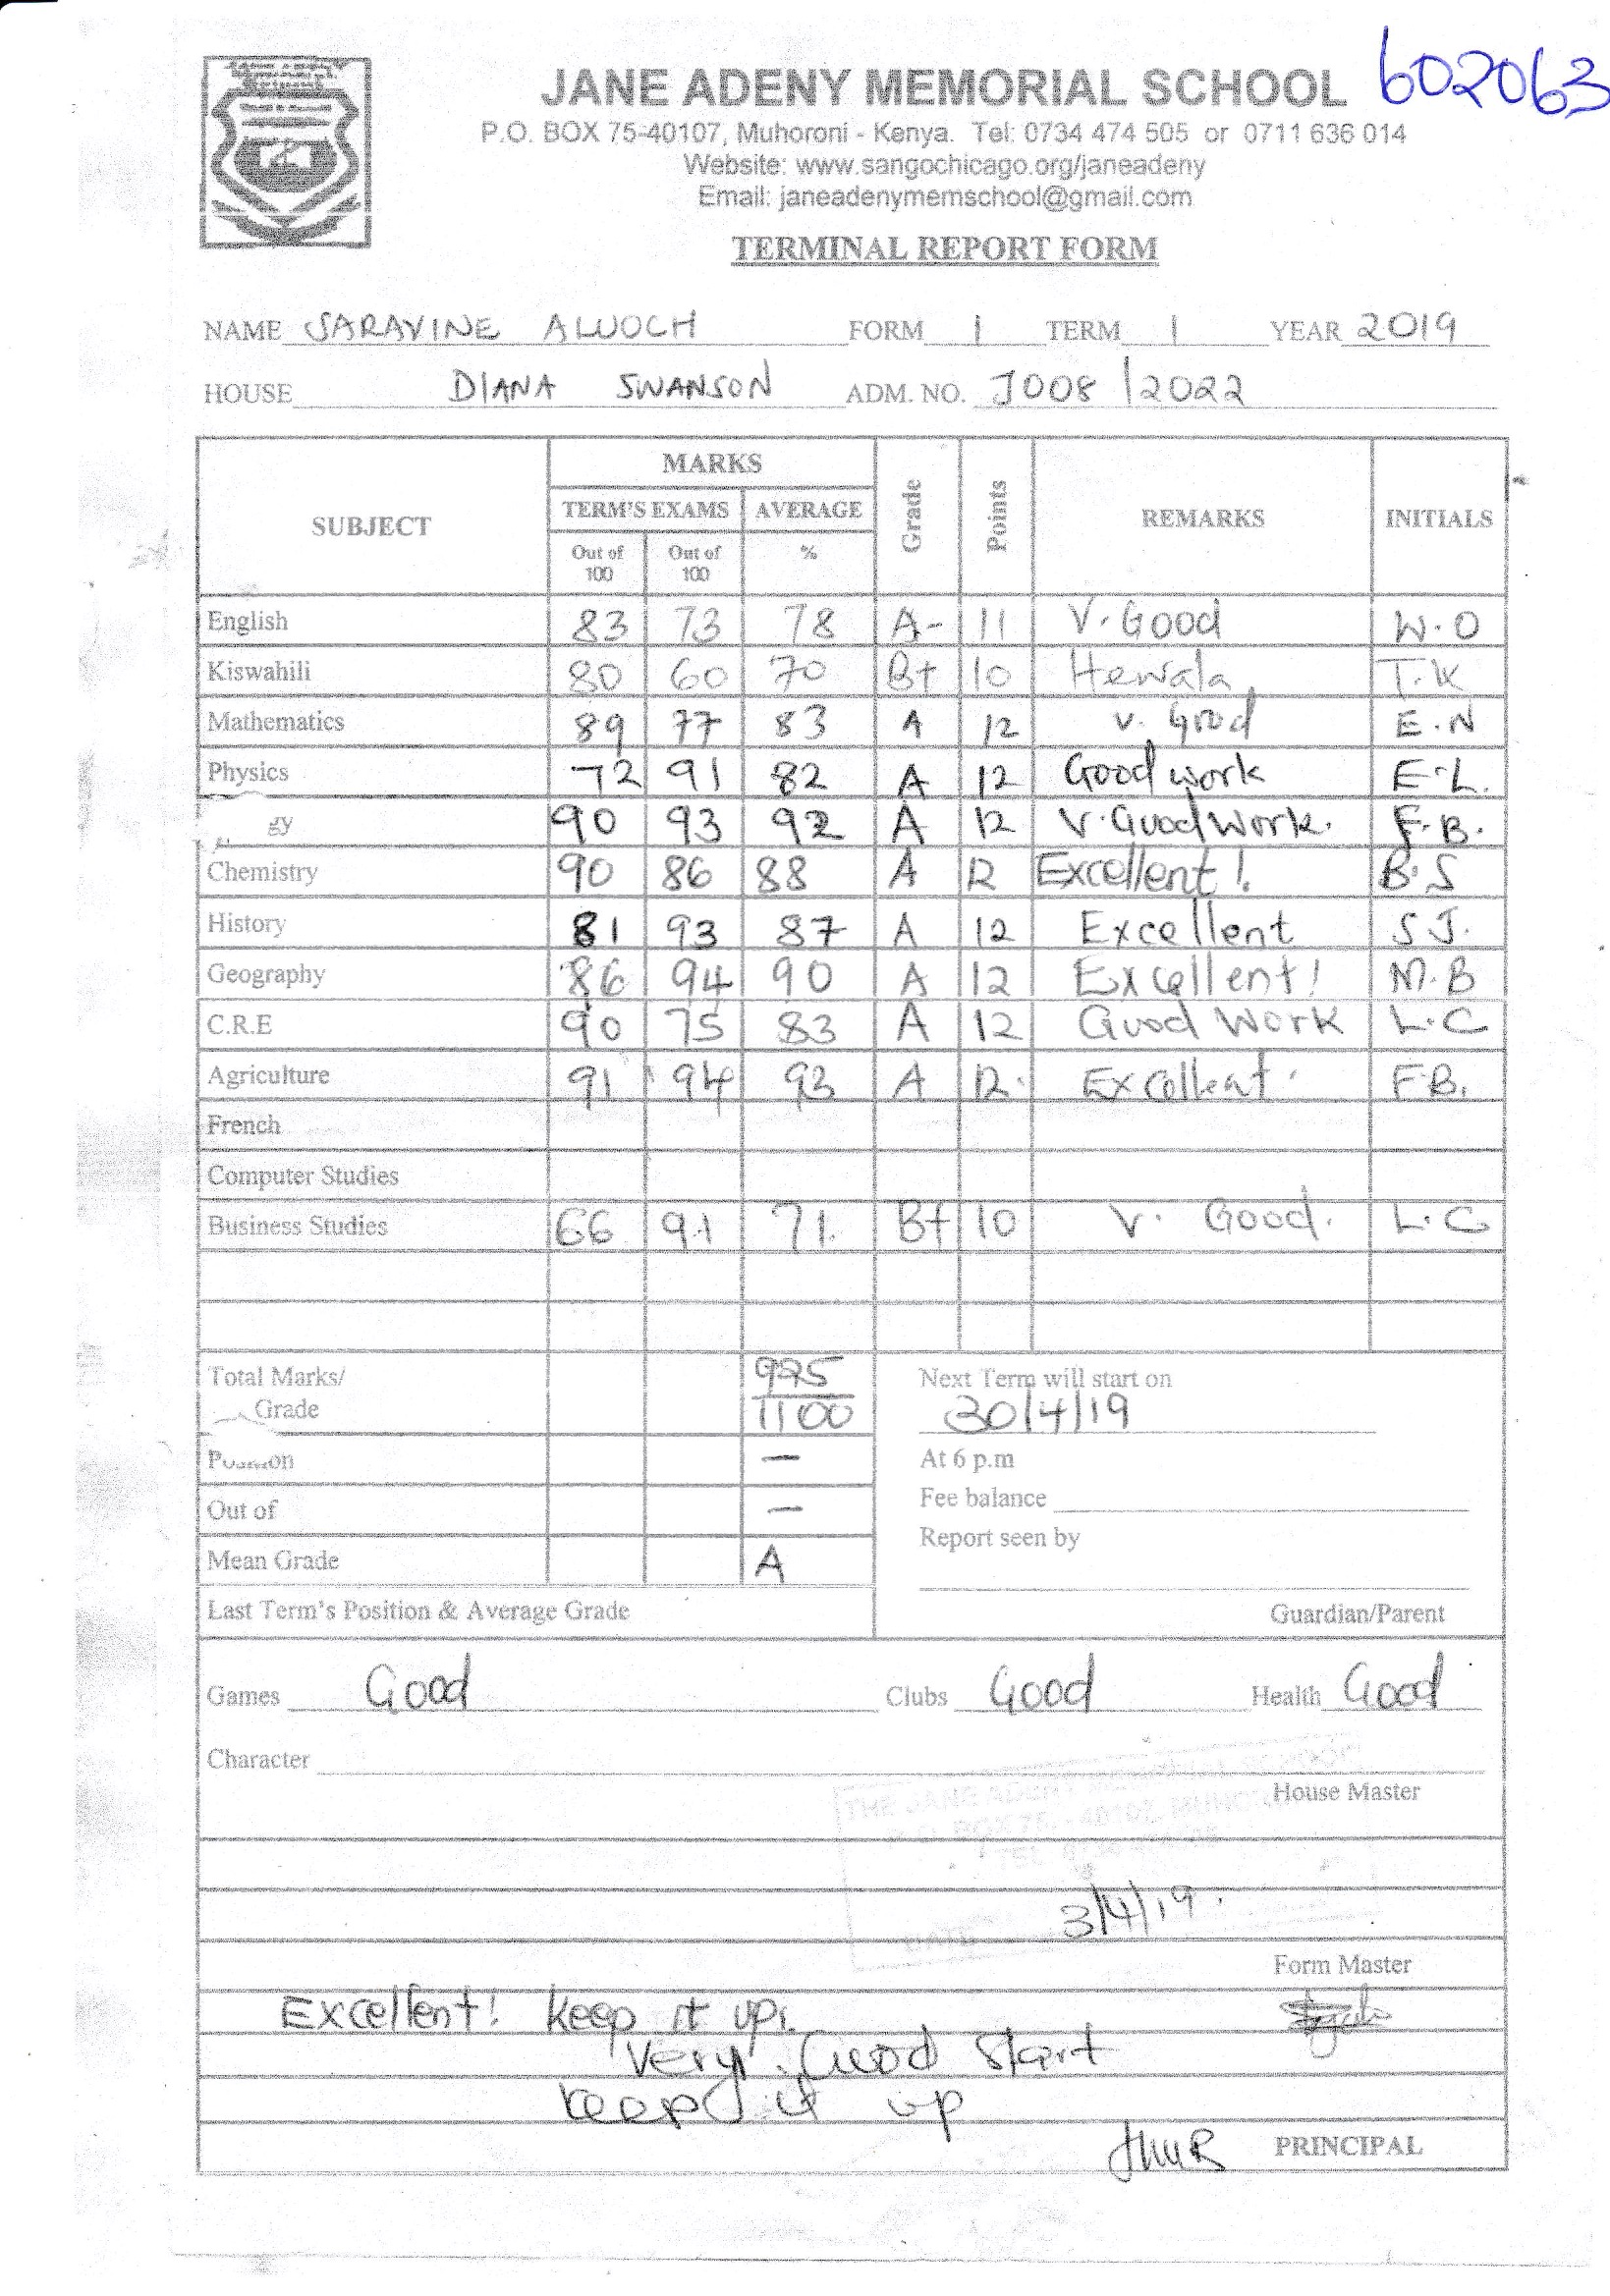 602063
JANE ADENY MEMORIAL SCHOOL
P.O. BOX 75-40107, Muhoroni - Kenya. Tel: 0734 474 505 or 0711 636 014
Website: www.sangochicago.org/janeadeny
Email: janeadenymemschool@gmail.com
TERMINAL REPORT FORM
NAME SARAVINE ALUOCH FORM 1 TERM 1 YEAR 2019
HOUSE DIANA SWANSON ADM. NO. J008/2022
SUBJECT MARKS Grade Points REMARKS INITIALS
TERM'S EXAMS AVERAGE
Out of 100 Out of 100 %
English 83 73 78 A- 11 V. Good W.O
Kiswahili 80 60 70 B+ 10 Hewala T.K
Mathematics 89 77 83 A 12 v. Good E.N
Physics 72 91 82 A 12 Good work E.L.
gy 90 93 92 A 12 V. Good Work. F.B.
Chemistry 90 86 88 A 12 Excellent! B.S
History 81 93 87 A 12 Excellent S.J.
Geography 86 94 90 A 12 Excellent! M.B
C.R.E 90 75 83 A 12 Good Work L.C
Agriculture 91 94 93 A 12 Excellent F.B.
French
Computer Studies
Business Studies 66 91 71 B+ 10 V. Good. L.C
Total Marks/ 995 Next Term will start on
Grade 1100 30/4/19
Position — At 6 p.m
Out of — Fee balance
Report seen by
Mean Grade A
Last Term's Position & Average Grade Guardian/Parent
Games Good Clubs Good Health Good
Character
House Master
THE JANE ADENY MEMORIAL SCHOOL
P.O. BOX 75 - 40107, MUHORONI
DATE 3/4/19.
Form Master
Excellent! keep it up.
Very Good Start
keep it up
PRINCIPAL